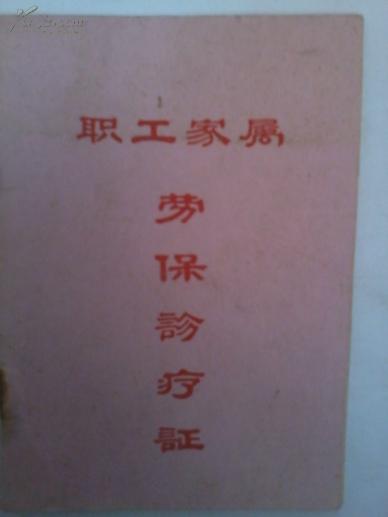 职工家属
劳保診疗証